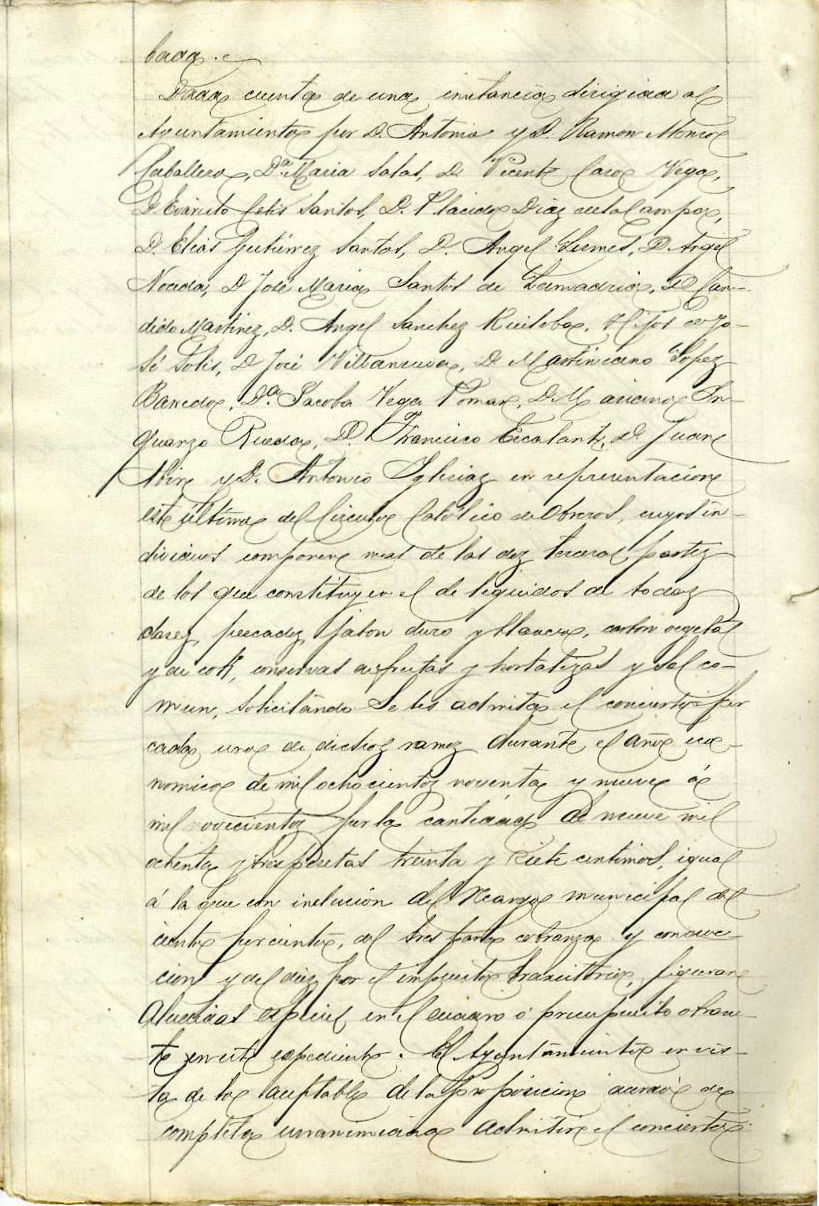 bada.
Dada cuenta de una instancia dirigida al
Ayuntamiento por D. Antonio y D. Ramón Monroe
Caballero, Dª Maria Salas, D. Vicente Caro Vega,
D. Evaristo Celis Santos, D. Placido Diaz de la Campa,
D. Elias Gutiérrez Santos, D. Angel Lermes, D. Angel
Noceda, D José Maria Santos de Lamadrid, D. Can-
dido Martinez, D. Angel Sanchez Ruiloba, Hijos de Jo-
sé Solis, D José Villanueva, D. Martiniano Lopez
Baredo, Dª Jacoba Vega Pomar, D. Mariano In-
guanzo Rueda, D. Francisco Escalante, D. Juan
y D. Antonio Iglesias en representacion
este último del Circulo Católico de Obreros, cuyos in-
dividuos componen mas de las dos terceras partes
de los que constituyen el de liquidos de todas
clases, pescados, jabon duro y blando, carbon vegetal
y de cok, conservas de frutas y hortalizas y sal co-
mun, solicitando se les admita el concierto por
cada uno de dichos ramos durante el año eco-
nomico de mil ochocientos noventa y nueve á
mil novecientos por la cantidad de nueve mil
ochenta y tres pesetas treinta y siete centimos, igual
á la que con inclusión del recargo municipal del
ciento por ciento, del tres para cobranza y conduc-
cion y del diez por el impuesto transitorio, figuran
aludidas especies en el cuadro ó presupuesto obran-
te en este expediente. El Ayuntamiento en vis-
ta de lo aceptable de la proposicion acordó de
completa unanimidad admitir el concierto